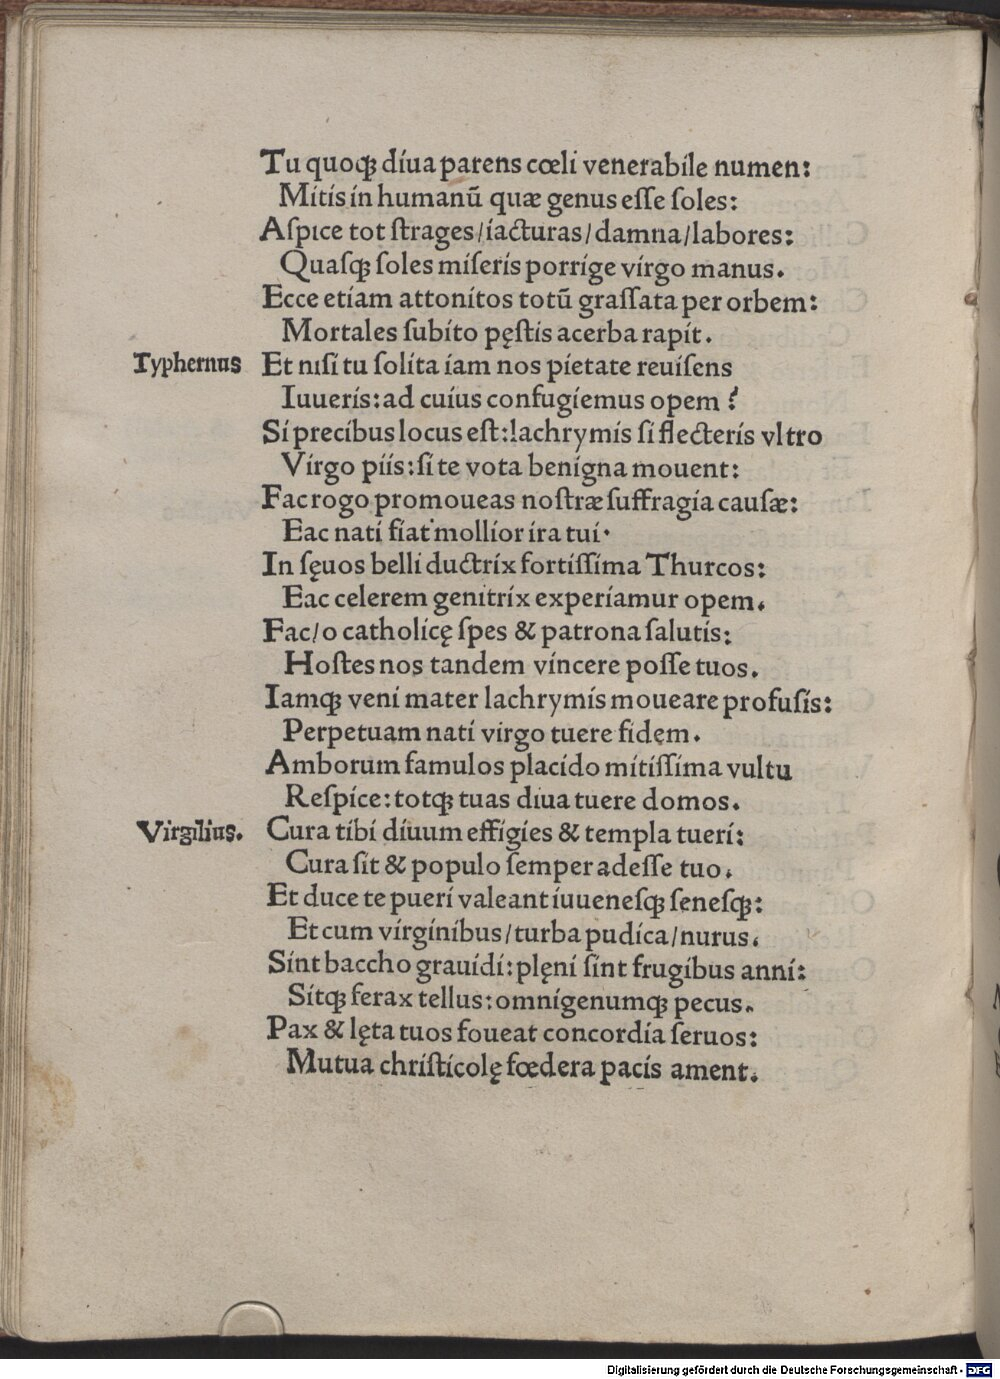 Tu quoqꝫ diua parens cœli venerabile numen:
Mitis in humanū quæ genus eſſe ſoles:
Aſpice tot ſtrages/iacturas/damna/labores:
Quaſqꝫ ſoles miſeris porrige virgo manus.
Ecce etiam attonitos totū graſſata per orbem:
Mortales ſubito pęſtis acerba rapit.
Typhernus Et niſi tu ſolita iam nos pietate reuiſens
Iuueris: ad cuius confugiemus opem?
Si precibus locus eſt: lachrymis ſi flecteris vltro
Virgo piis: ſi te vota benigna mouent:
Fac rogo promoueas noſtræ ſuffragia cauſæ:
Eac nati fiat mollior ira tui.
In ſęuos belli ductrix fortiſſima Thurcos:
Eac celerem genitrix experiamur opem.
Fac/o catholicę ſpes & patrona ſalutis:
Hoſtes nos tandem vincere poſſe tuos.
Iamqꝫ veni mater lachrymis moueare profuſis:
Perpetuam nati virgo tuere fidem.
Amborum famulos placido mitiſſima vultu
Reſpice: totqꝫ tuas diua tuere domos.
Virgilius. Cura tibi diuum effigies & templa tueri:
Cura ſit & populo ſemper adeſſe tuo.
Et duce te pueri valeant iuueneſqꝫ ſeneſqꝫ:
Et cum virginibus/turba pudica/nurus.
Sint baccho grauidi: plęni ſint frugibus anni:
Sitqꝫ ferax tellus: omnigenumqꝫ pecus.
Pax & lęta tuos foueat concordia ſeruos:
Mutua chriſticolę fœdera pacis ament.
Digitalisierung gefördert durch die Deutsche Forschungsgemeinschaft - DFG